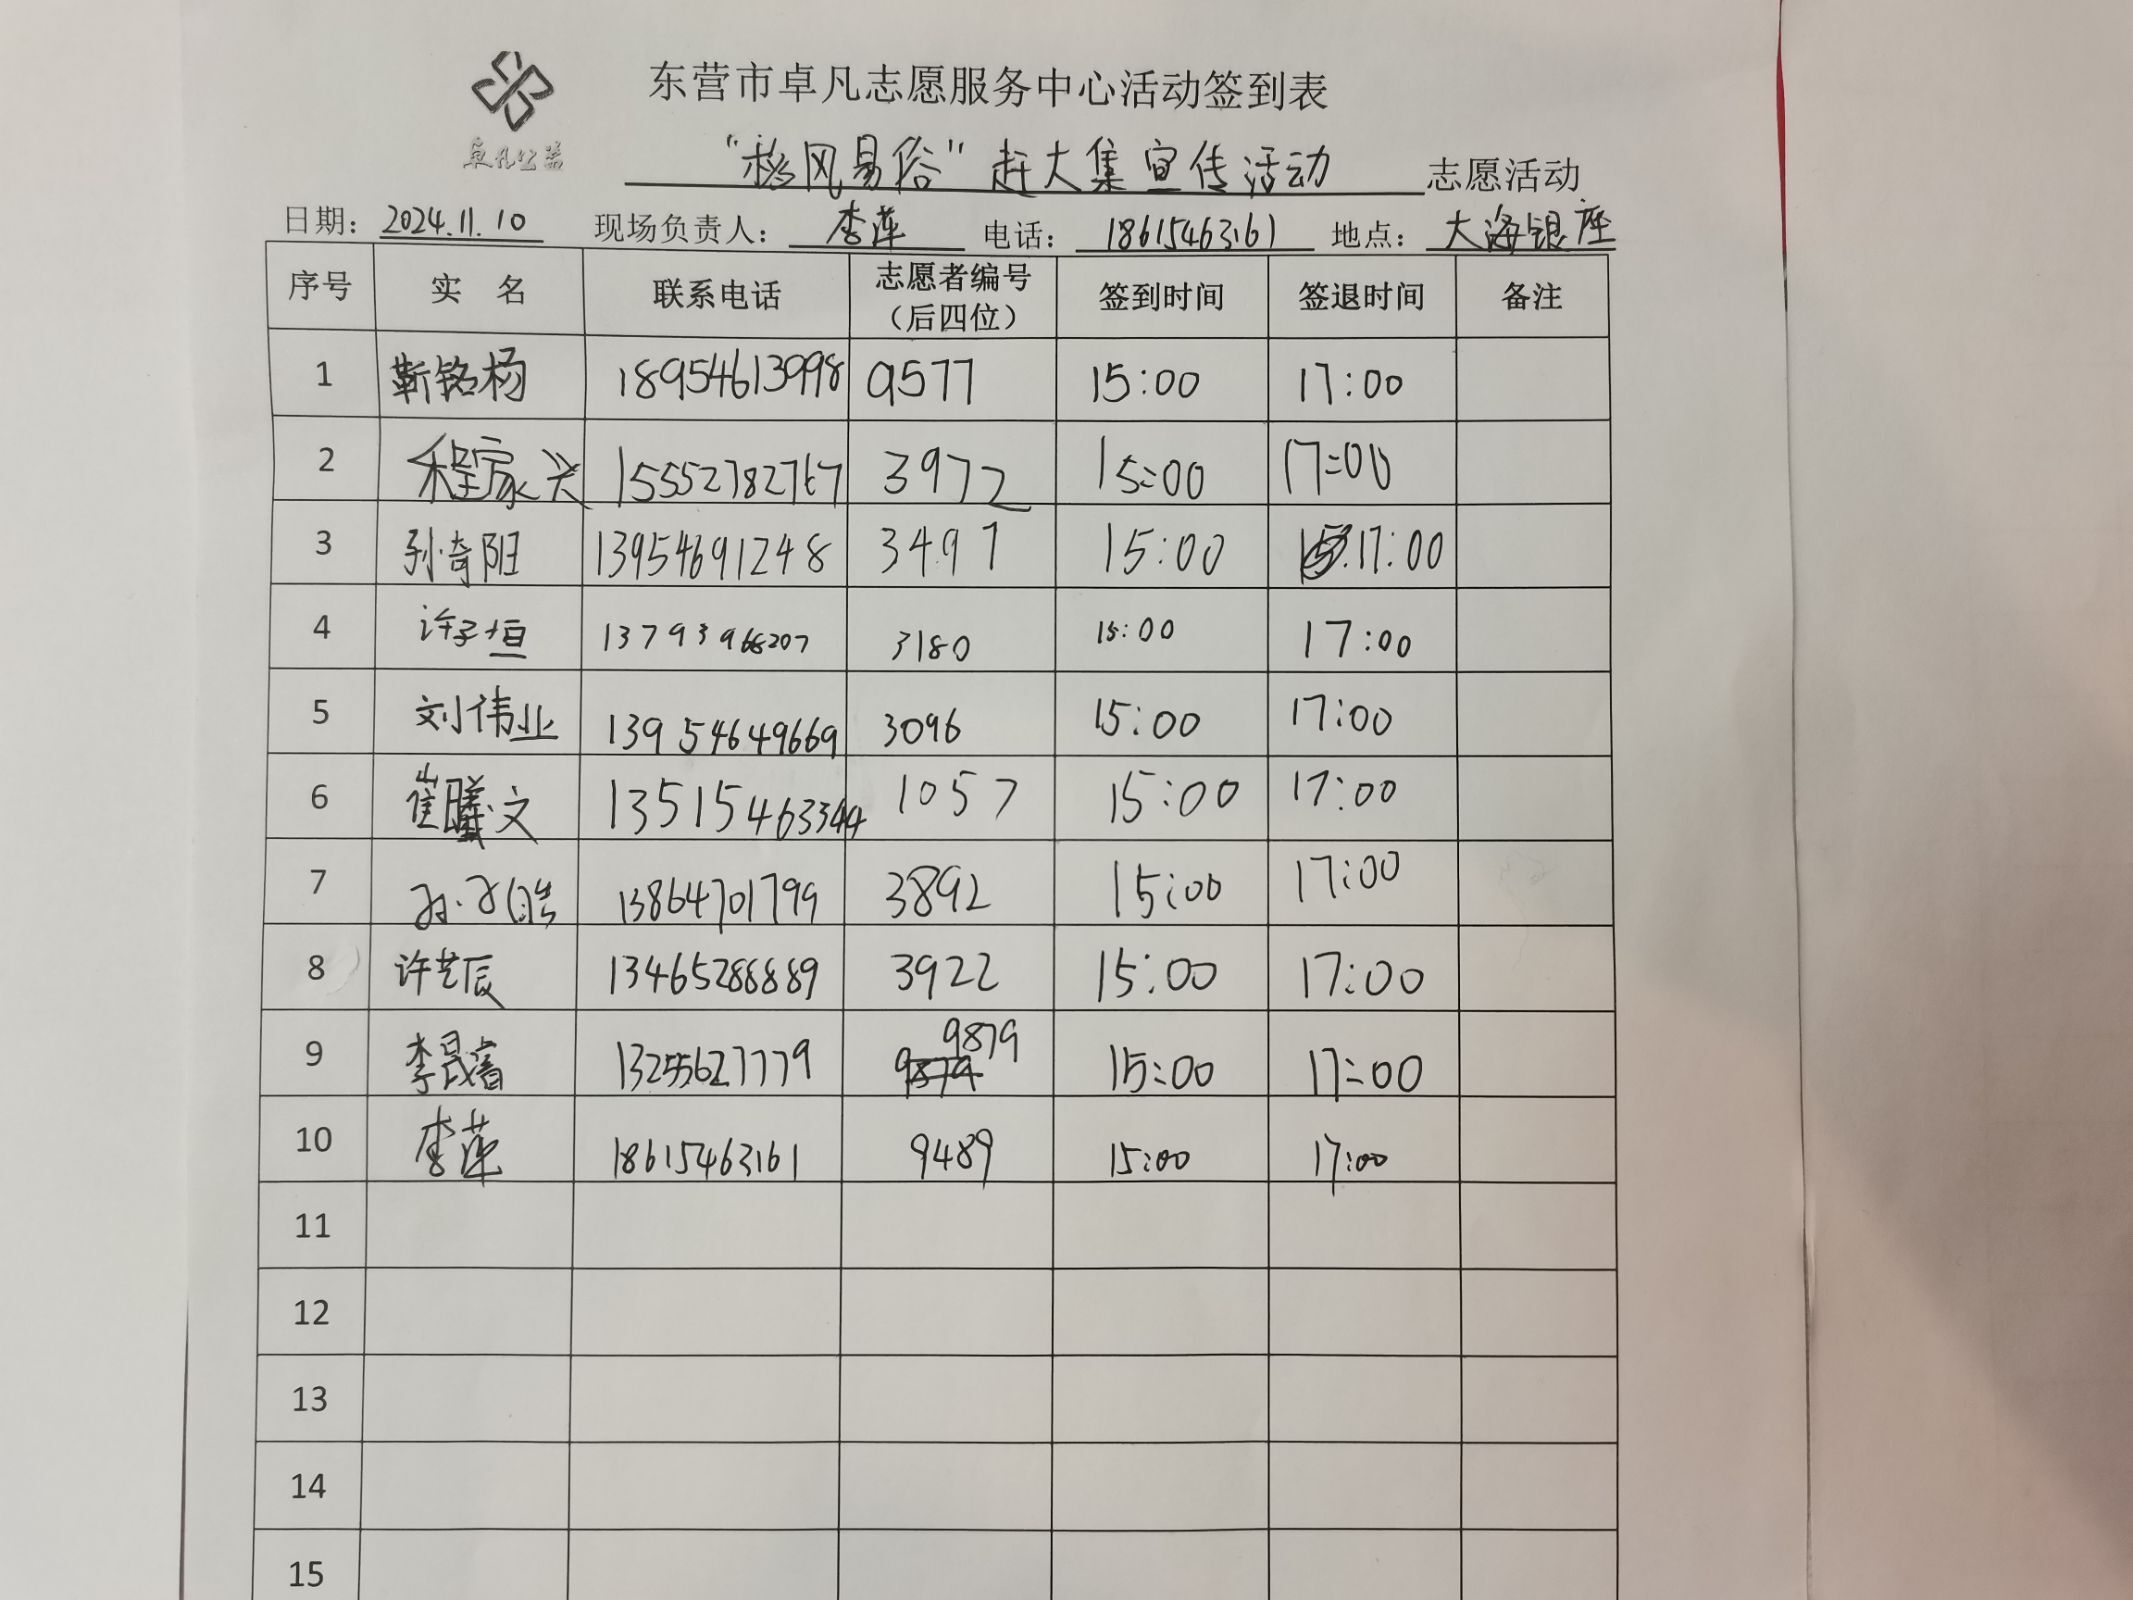 东营市卓凡志愿服务中心活动签到表
卓凡公益
“移风易俗”赶大集宣传活动 志愿活动
日期: 2024.11.10 现场负责人: 李莲 电话: 18615463161 地点: 大海银座
序号 实 名 联系电话 志愿者编号（后四位） 签到时间 签退时间 备注
1 靳铭杨 18954613998 9577 15:00 17:00
2 程家兴 15552782767 3972 15:00 17:00
3 孙奇阳 13954691248 3497 15:00 17:00
4 许子恒 13793966207 3180 15:00 17:00
5 刘伟业 13954649669 3096 15:00 17:00
6 崔曦文 13515463344 1057 15:00 17:00
7 13864701799 3892 15:00 17:00
8 许艺辰 13465288889 3922 15:00 17:00
9 李晟睿 13255627779 9879 15:00 17:00
10 李莲 18615463161 9489 15:00 17:00
11
12
13
14
15